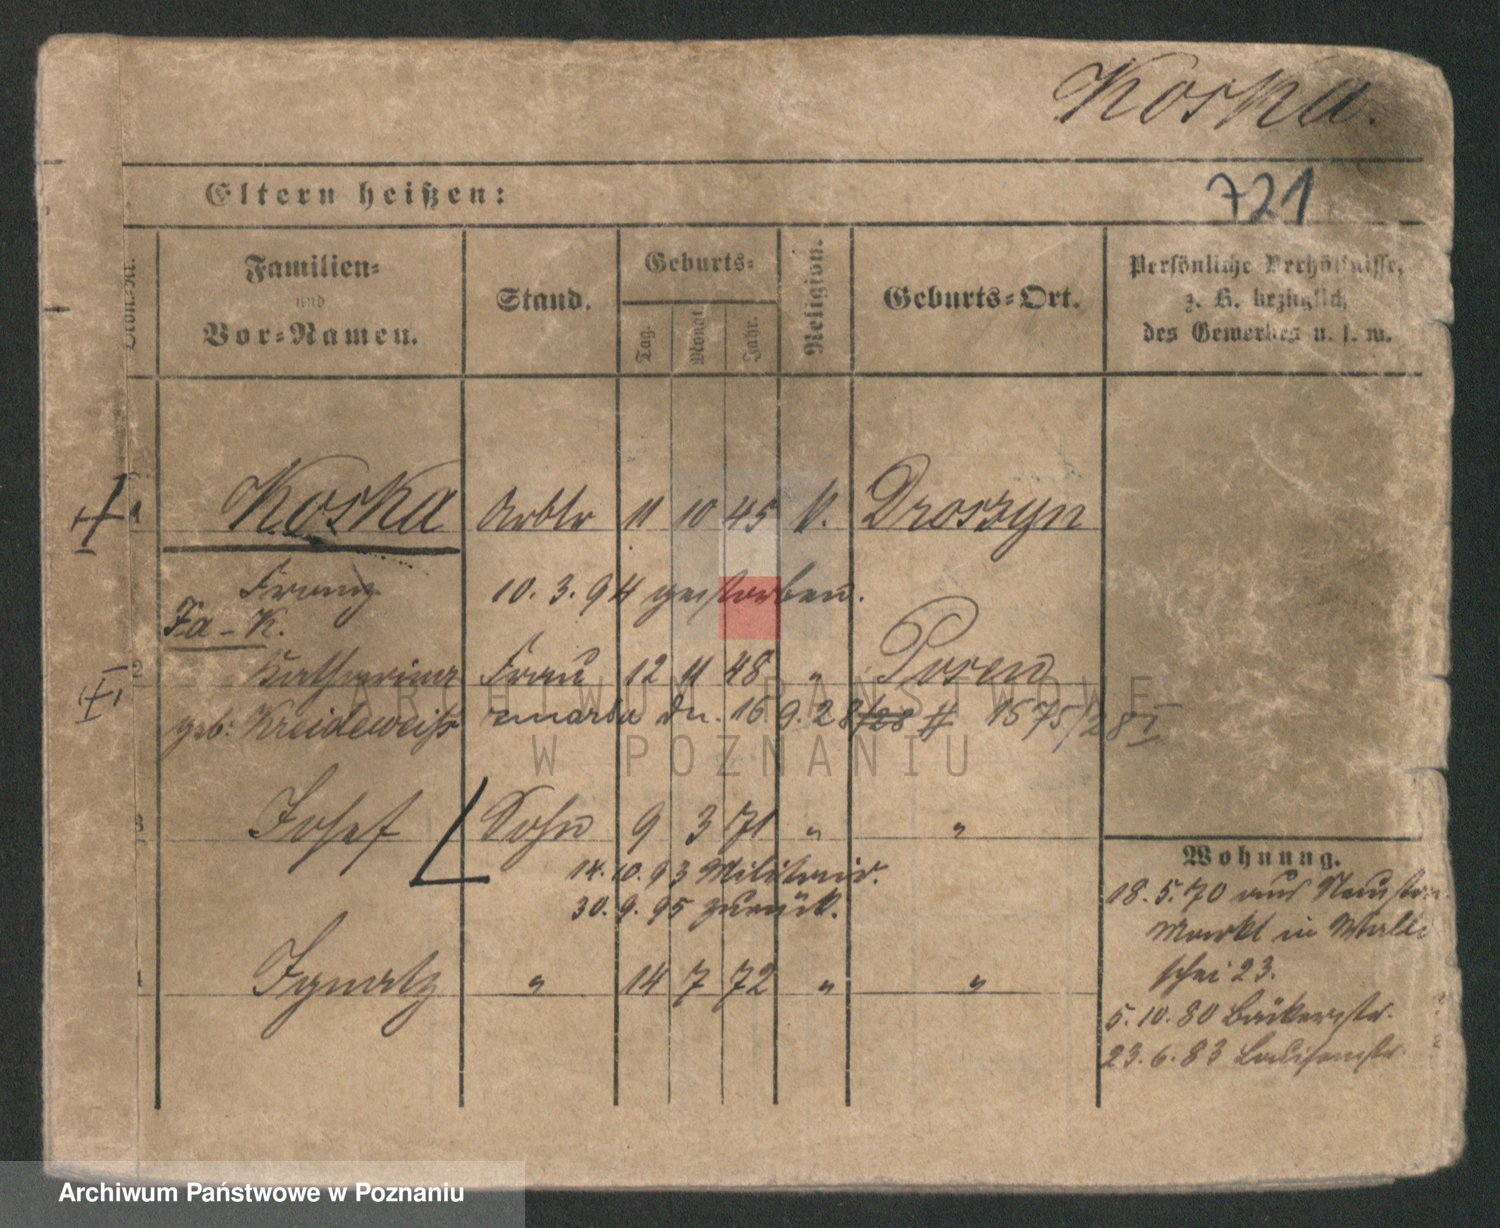 Koska.
Eltern heißen:
721
Familien-
und
Vor-Namen.
Stand.
Geburts-
Tag.
Monat.
Jahr.
Religion.
Geburts-Ort.
Persönliche Verhältnisse,
z. B. bezüglich
des Gewerbes u. s. w.
1 Koska Arbtr 11 10 45 k. Droszyn
Franz 10. 3. 94 gestorben.
Fa - K.
2 Katharina Frau 12 11 48 " Posen
geb: Kreideweiß zmarła dn. 16 9. 28 # 1575/28 I
3 Josef Sohn 9 3 71 " "
14. 10. 93 Militair.
30. 9. 95 zurück.
Ignatz " 14 7 72 " "
Wohnung.
18. 5. 70 aus Neustr.
Markt in Walli
schei 23.
5. 10. 80 Bäckerstr.
23. 6. 83 Louisenstr.
ARCHIWUM PAŃSTWOWE
W POZNANIU
Archiwum Państwowe w Poznaniu